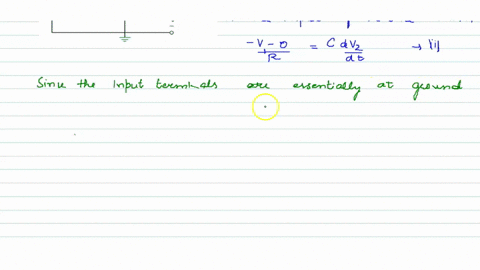 -V - 0 / R = C dV2 / dt → (i)
Since the Input terminals are essentially at ground